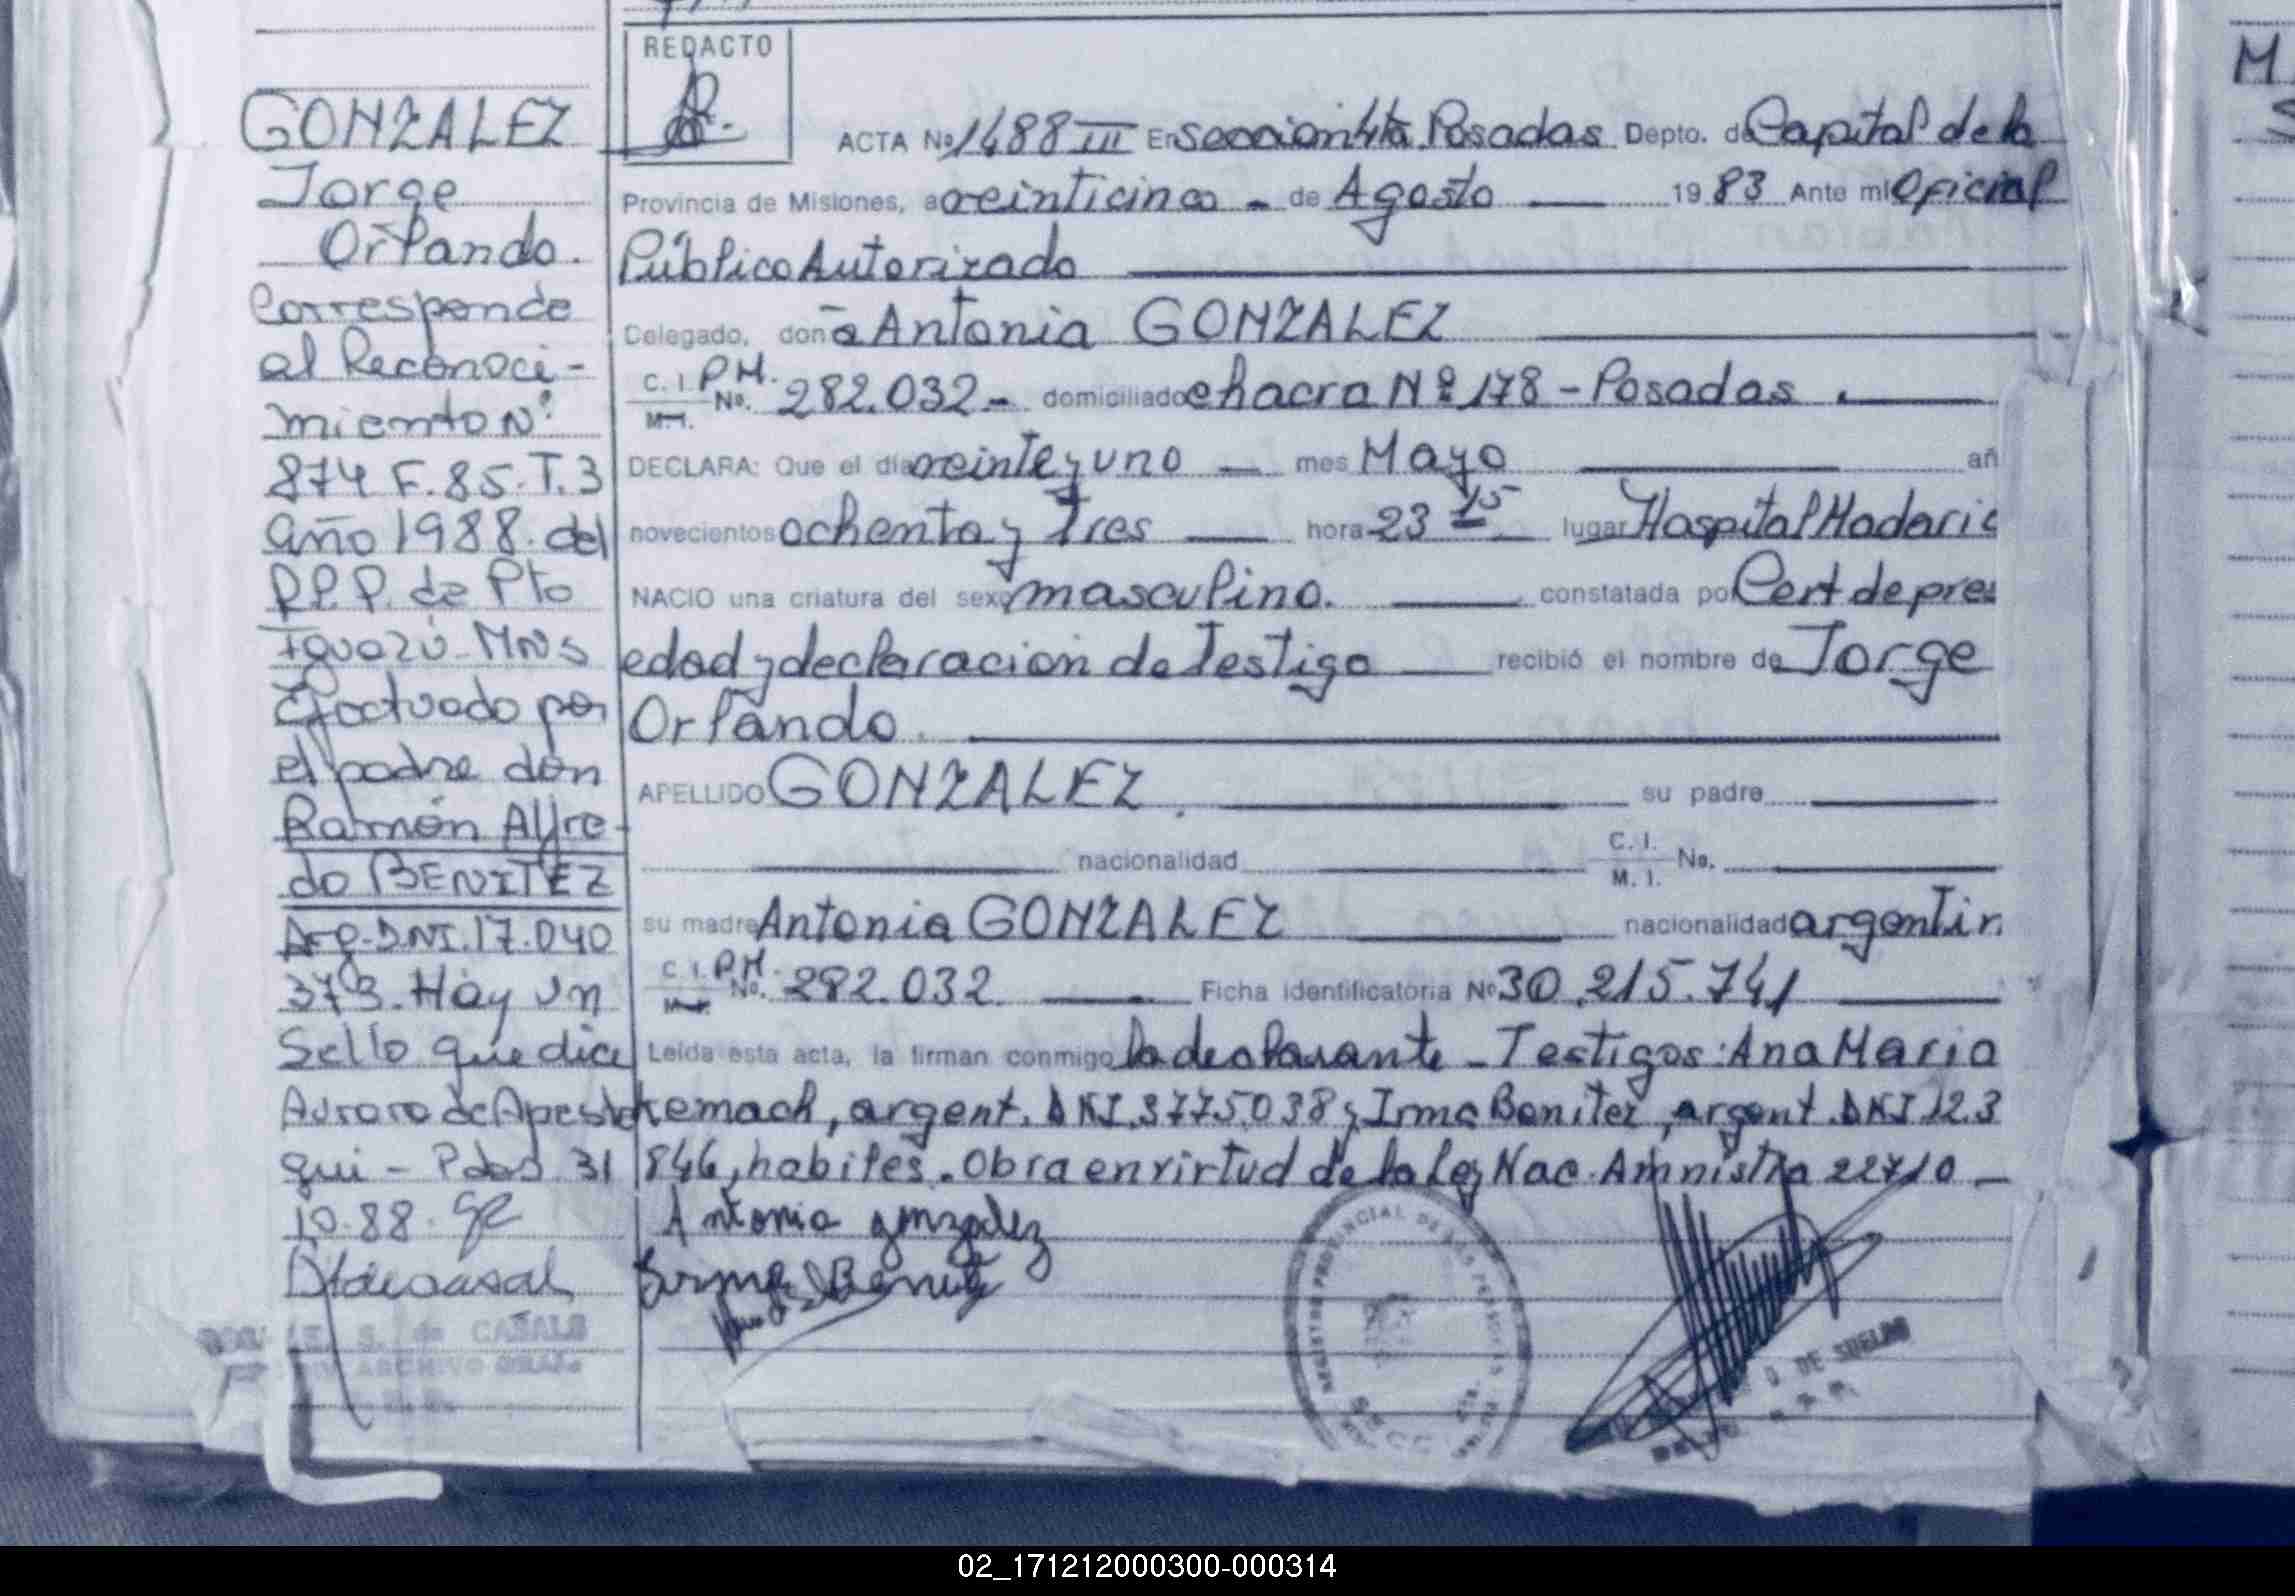 GONZALEZ
Jorge
Orlando.
Corresponde
al Reconoci-
miento Nº
874 F.85.T.3
año 1988. del
R.P.P. de Pto
Iguazú-Mns
Efectuado por
el padre don
Ramón Alfre-
do BENITEZ
Arg-DNI.17.040
373. Hay un
Sello que dice
Aurora de Apeste
gui - Pdas. 31
10.88.
S. de CASALS
ARCHIVO GRAL.
REDACTO
ACTA Nº 1488 III En seccion 4ta Posadas Depto. de Capital de la
Provincia de Misiones, a veinticinco - de Agosto 19 83 Ante mi Oficial
Público Autorizado
Delegado, doña Antonia GONZALEZ
C. I. P.M. No. 282.032- domiciliado chacra Nº 178 - Posadas.
M. I.
DECLARA: Que el día veinte y uno mes Mayo añ
novecientos ochenta y Tres hora 23 15 lugar Hospital Madaric
NACIO una criatura del sexo masculino. constatada por Cert de pres
edad y declaracion de Testigo recibió el nombre de Jorge
Orlando.
APELLIDO GONZALEZ. su padre
nacionalidad C. I. M. I. No.
su madre Antonia GONZALEZ nacionalidad argentin
C. I. P.M. No. 282.032 Ficha identificatoria Nº 30.215.741
M. I.
Leída esta acta, la firman conmigo la declarante - Testigos: Ana Maria
kemach, argent. DNI.3775.038 y Irma Benitez, argent. DNI 12.3
846, habiles. Obra en virtud de la Ley Nac. Amnistia 22710 -
Antonia gonzalez
Irma Benitez
REGISTRO PROVINCIAL DE LAS PERSONAS
DE SUELDO
M
02_171212000300-000314